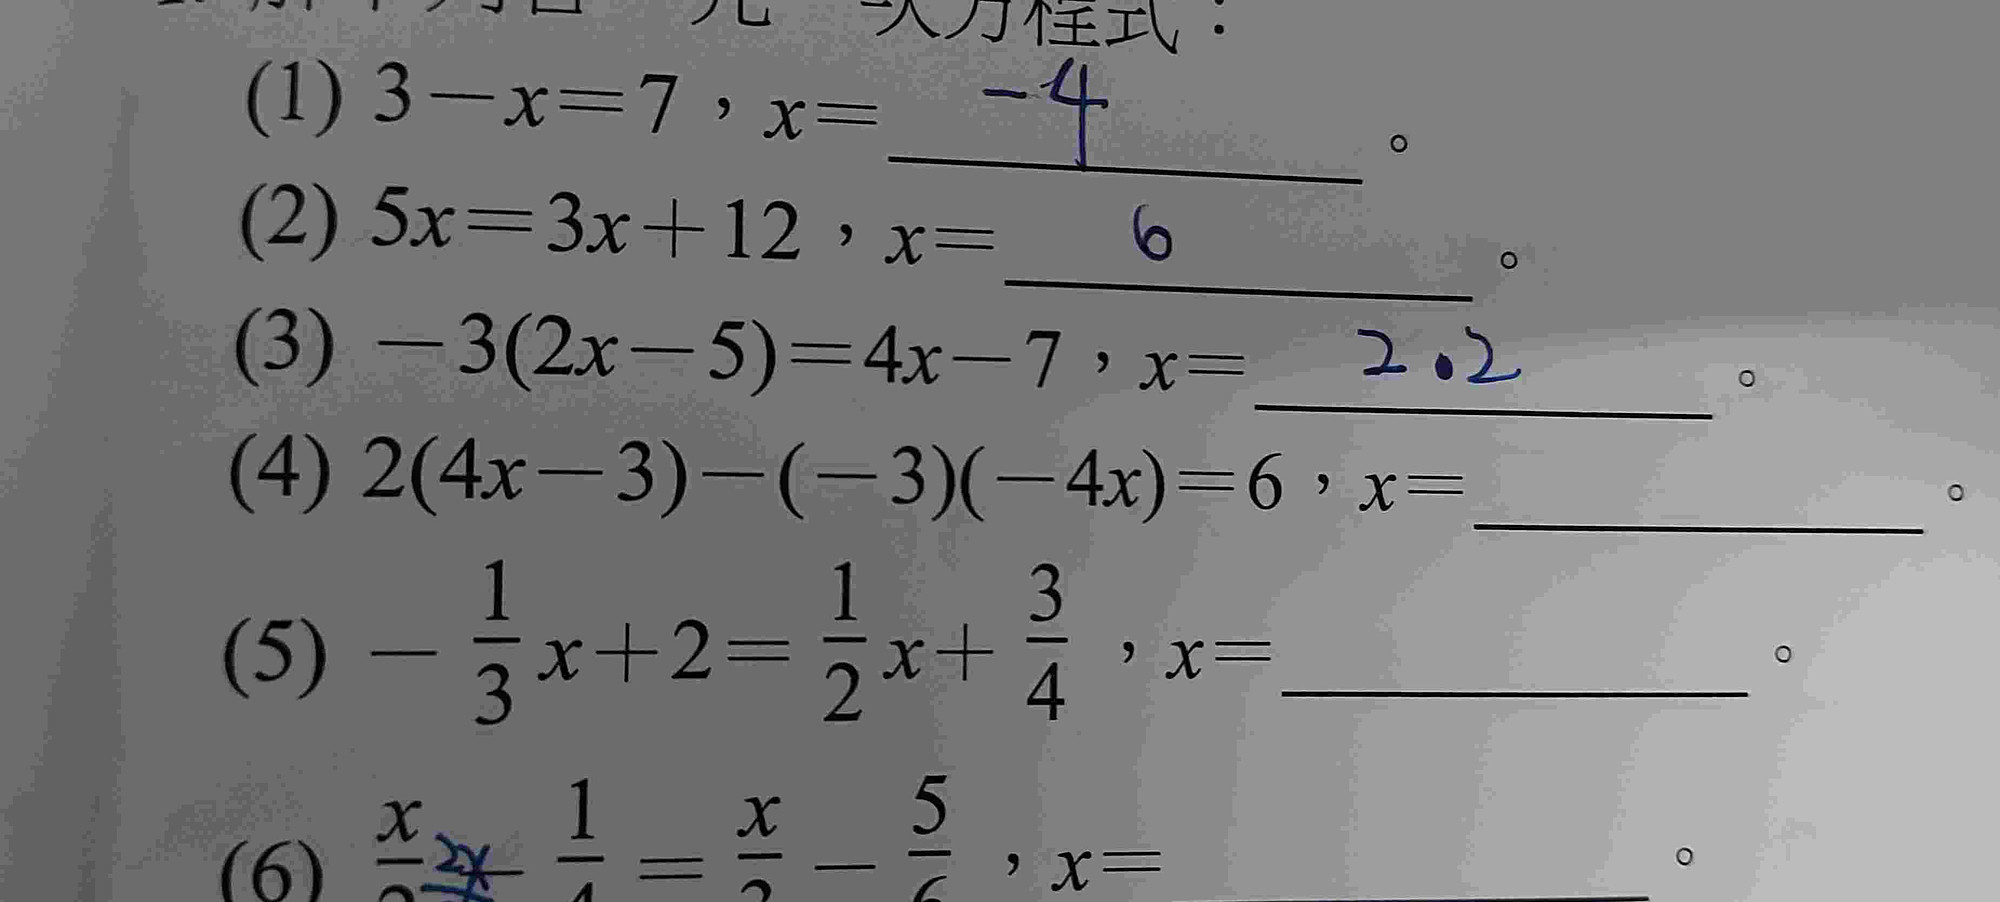 元一次方程式：
(1) 3－x＝7，x＝ -4 。
(2) 5x＝3x＋12，x＝ 6 。
(3) －3(2x－5)＝4x－7，x＝ 2.2 。
(4) 2(4x－3)－(－3)(－4x)＝6，x＝ 。
(5) －1/3 x＋2＝1/2 x＋3/4，x＝ 。
(6) x 2x 1 ＝ x － 5/6，x＝ 。